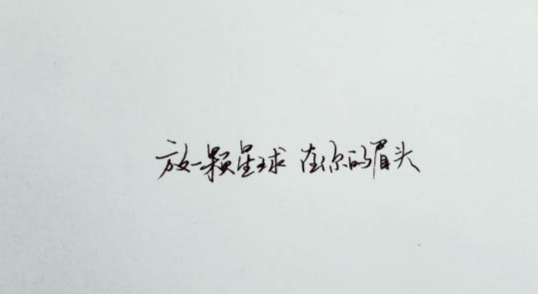 放一颗星球 在你的眉头